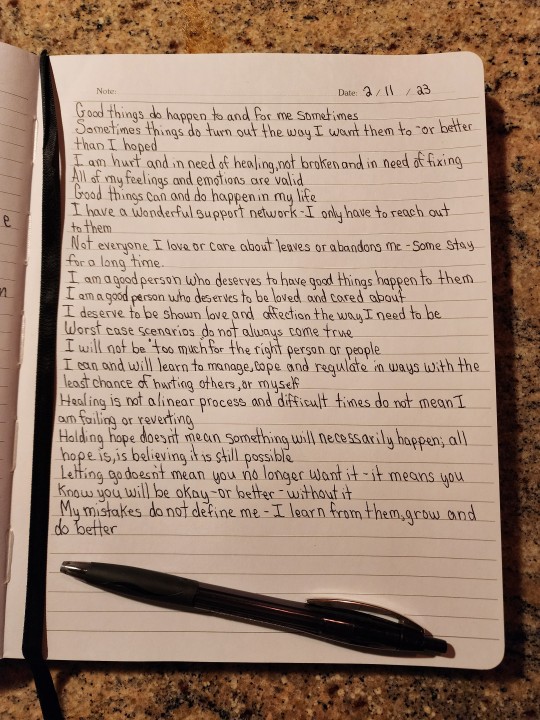 Note: Date: 2/11/23
Good things do happen to and for me sometimes
Sometimes things do turn out the way I want them to - or better
than I hoped
I am hurt and in need of healing, not broken and in need of fixing
All of my feelings and emotions are valid
Good things can and do happen in my life
I have a wonderful support network - I only have to reach out
to them
Not everyone I love or care about leaves or abandons me - some stay
for a long time.
I am a good person who deserves to have good things happen to them
I am a good person who deserves to be loved and cared about
I deserve to be shown love and affection the way I need to be
Worst case scenarios do not always come true
I will not be "too much" for the right person or people
I can and will learn to manage, cope and regulate in ways with the
least chance of hurting others, or myself
Healing is not a linear process and difficult times do not mean I
am failing or reverting
Holding hope doesn't mean something will necessarily happen; all
hope is, is believing it is still possible
Letting go doesn't mean you no longer want it - it means you
know you will be okay - or better - without it
My mistakes do not define me - I learn from them, grow and
do better
e
n